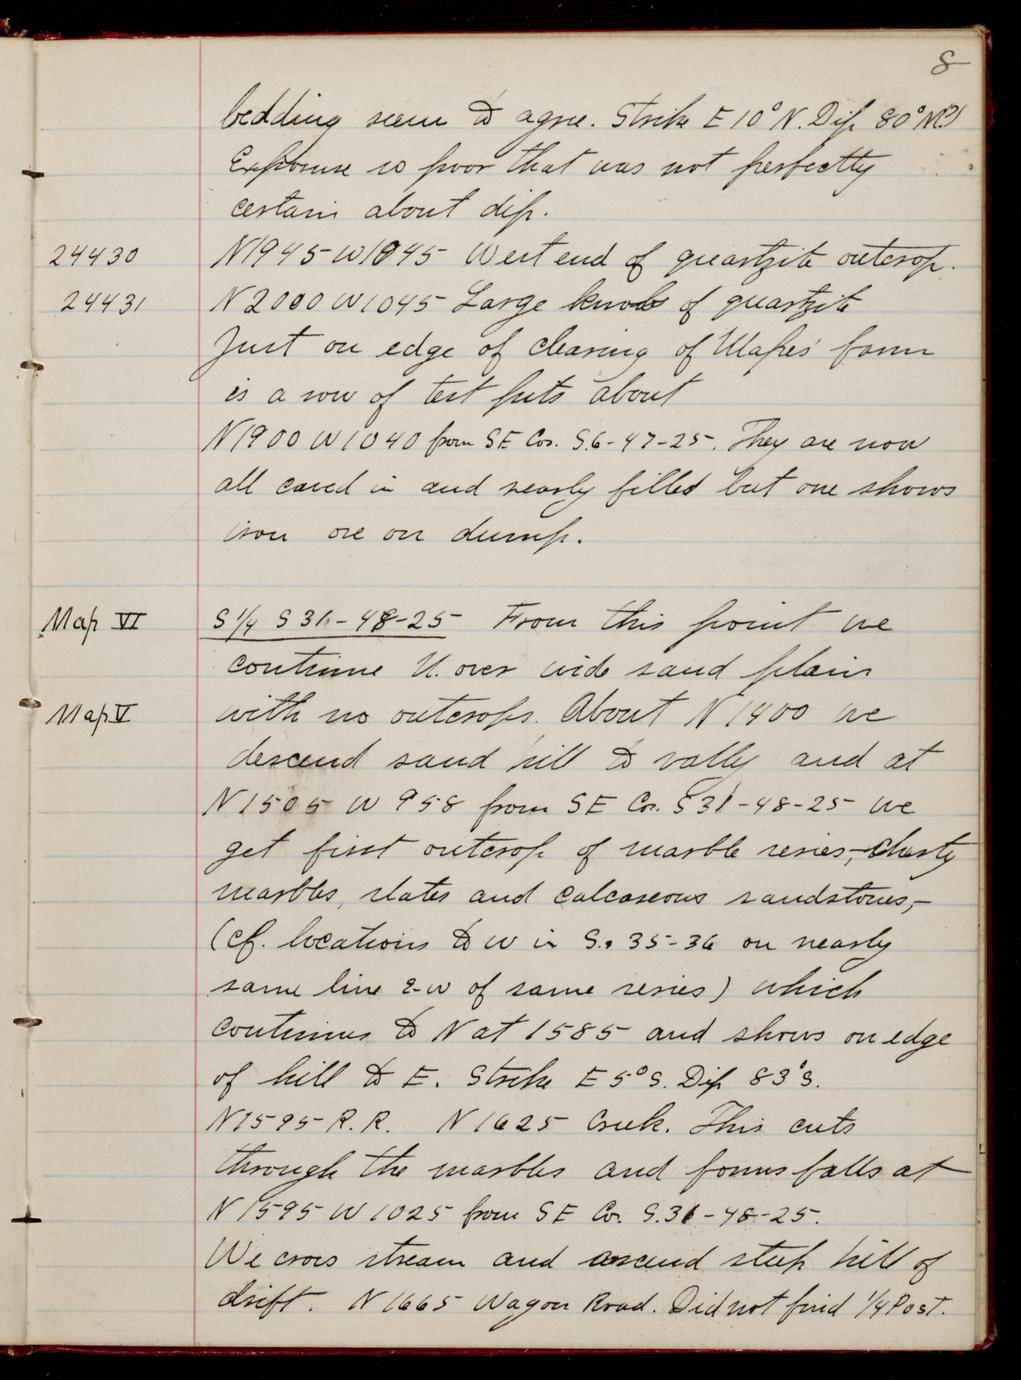 8
bedding seem to agree. Strike E 10° N. Dip 80° N(?)
Exposure so poor that was not perfectly
certain about dip.
24430 N1945-W1045 West end of quartzite outcrop.
24431 N2000 W1045 Large knobs of quartzite
Just on edge of clearing of Mapes' farm
is a row of test pits about
N1900 W1040 from SE Cor. S.6-47-25. They are now
all caved in and nearly filled but one shows
iron ore on dump.
Map VI S 1/4 S 31-48-25 From this point we
continue N. over wide sand plain
Map V with no outcrops. About N 1400 we
descend sand hill to vally and at
N1505 W 958 from SE Cor. S31-48-25 we
get first outcrop of marble series,-cherty
marbles, slates and calcareous sandstones,-
(cf. locations to W in S. 35-36 on nearly
same line E-W of same series) which
continues to N at 1585 and shows on edge
of hill to E. Strike E 5° S. Dip 83° S.
N1595-R.R. N 1625 Creek. This cuts
through the marbles and forms falls at
N 1595 W 1025 from SE Co. S.31-48-25.
We cross stream and ascend steep hill of
drift. N 1665 Wagon Road. Did not find 1/4 Post.